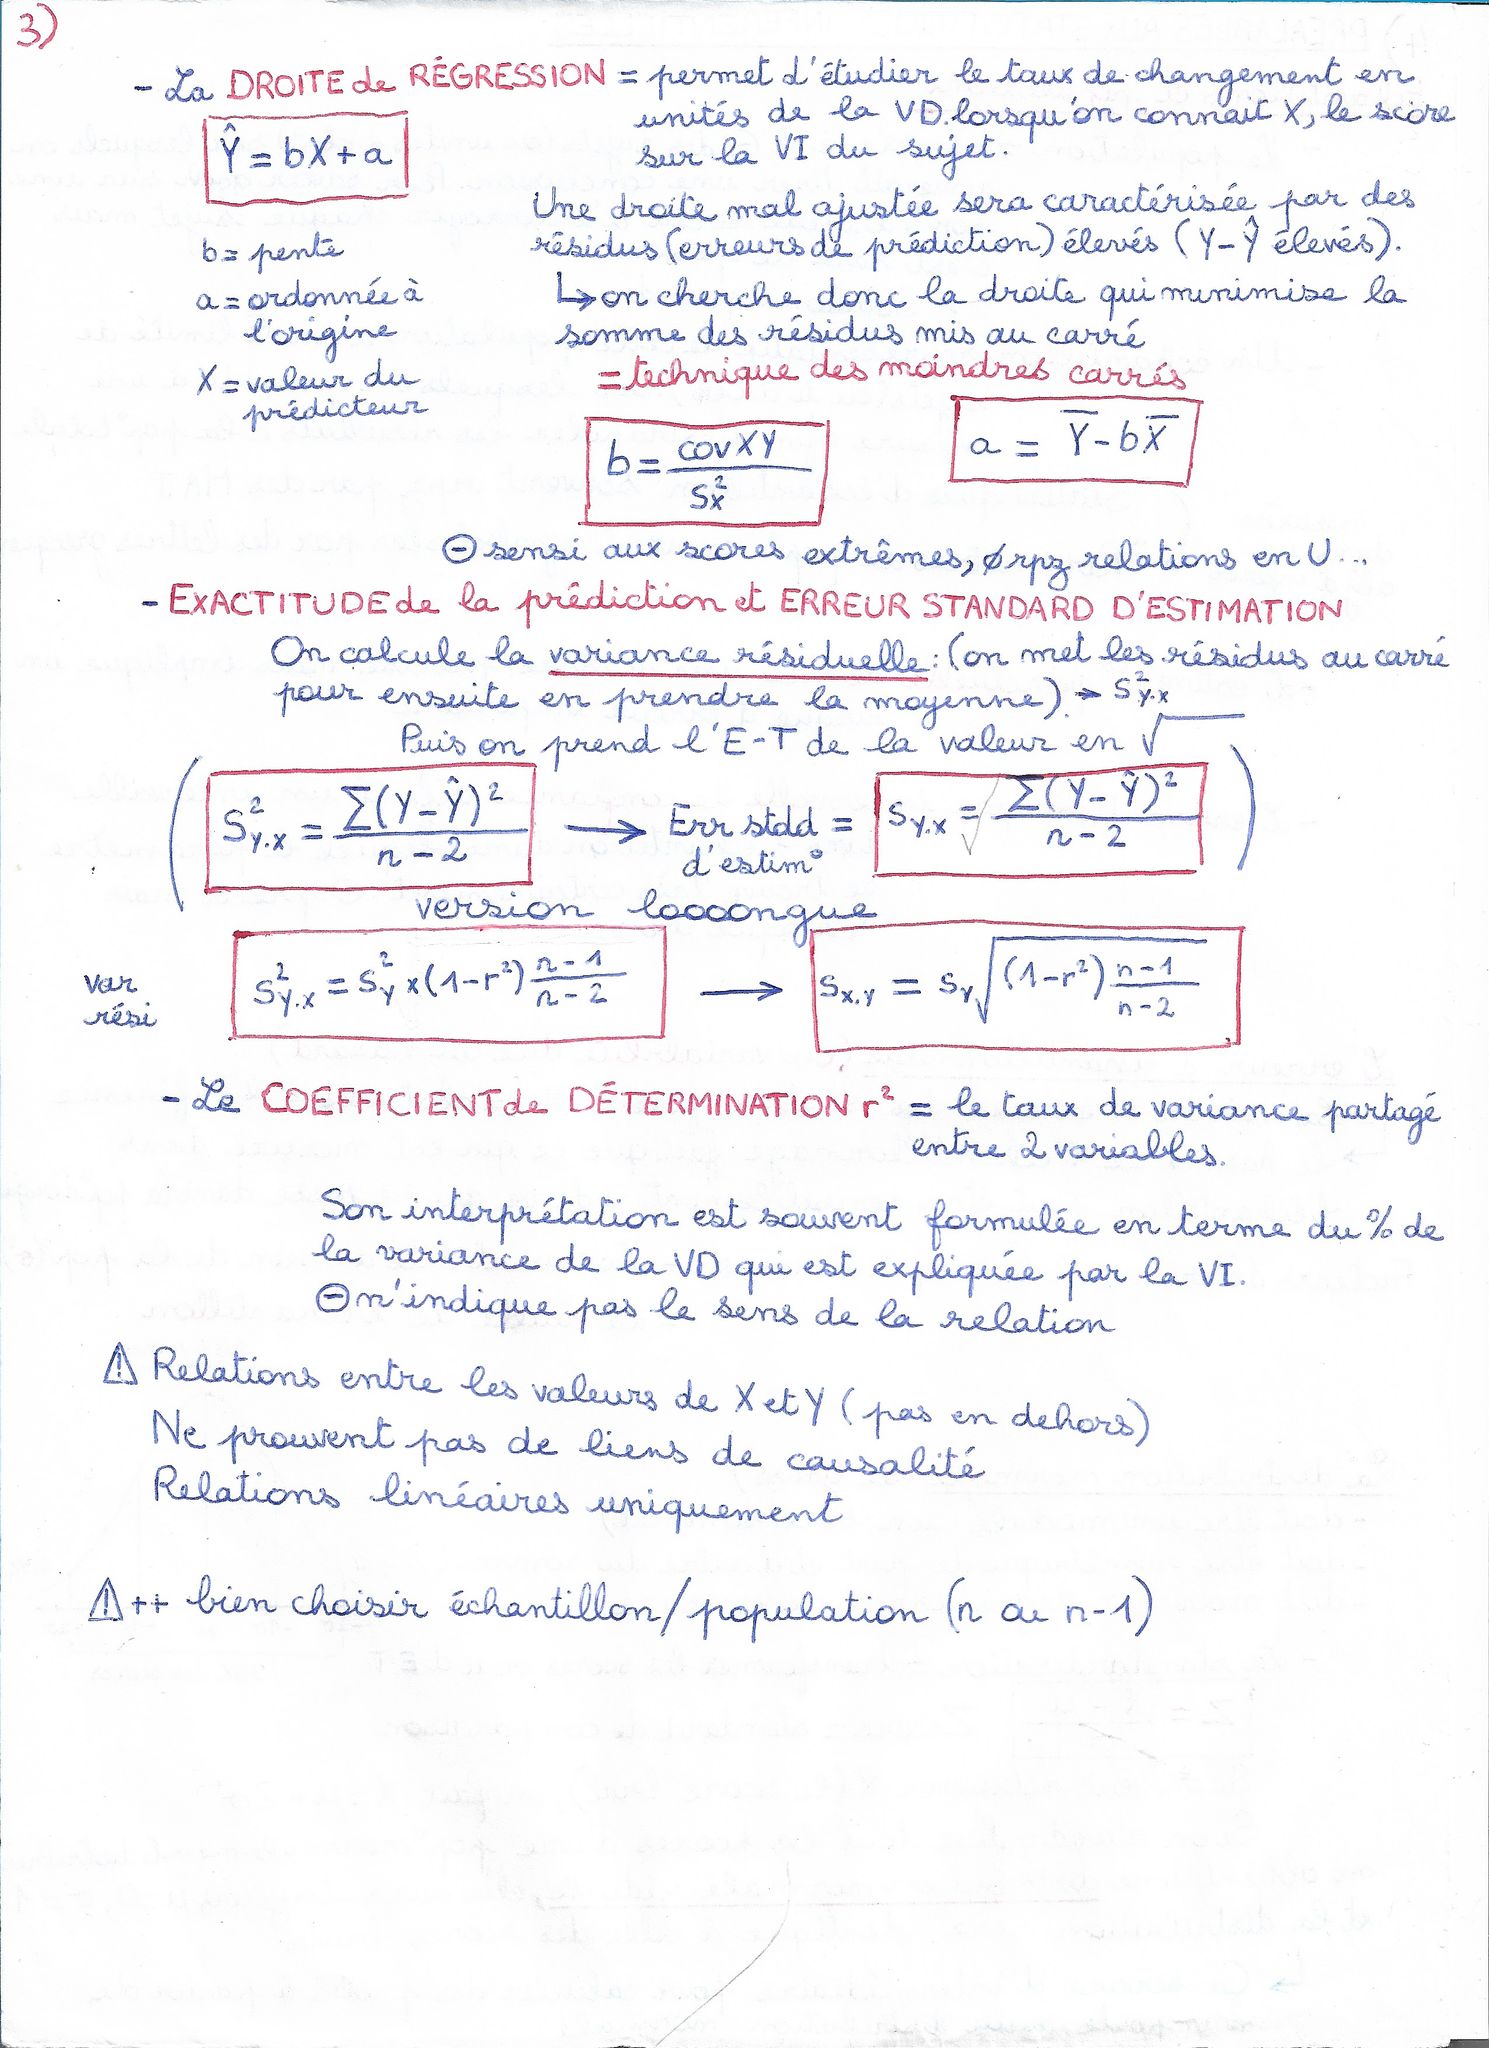 3)
- La DROITE de RÉGRESSION = permet d'étudier le taux de changement en
unités de la VD lorsqu'on connait X, le score
sur la VI du sujet.
Ŷ = bX + a
Une droite mal ajustée sera caractérisée par des
résidus (erreurs de prédiction) élevés (Y - Ŷ élevés).
b = pente
a = ordonnée à
l'origine
X = valeur du
prédicteur
↳ on cherche donc la droite qui minimise la
somme des résidus mis au carré
= technique des moindres carrés
b = covXY / s²x
a = Y̅ - bX̅
⊖ sensi aux scores extrêmes, ∅ rpz relations en U...
- EXACTITUDE de la prédiction et ERREUR STANDARD D'ESTIMATION
On calcule la variance résiduelle : (on met les résidus au carré
pour ensuite en prendre la moyenne) → S²Y.X
Puis on prend l'E-T de la valeur en √
( S²Y.X = Σ(Y - Ŷ)² / n - 2 → Err stdd d'estim° = SY.X = √ Σ(Y - Ŷ)² / n - 2 )
version loooongue
var rési S²Y.X = S²Y x (1 - r²) n-1 / n-2 → SX.Y = SY √ (1 - r²) n-1 / n-2
- Le COEFFICIENT de DÉTERMINATION r² = le taux de variance partagé
entre 2 variables.
Son interprétation est souvent formulée en terme du % de
la variance de la VD qui est expliquée par la VI.
⊖ n'indique pas le sens de la relation
⚠ Relations entre les valeurs de X et Y (pas en dehors)
Ne prouvent pas de liens de causalité
Relations linéaires uniquement
⚠ ++ bien choisir échantillon/population (n ou n-1)